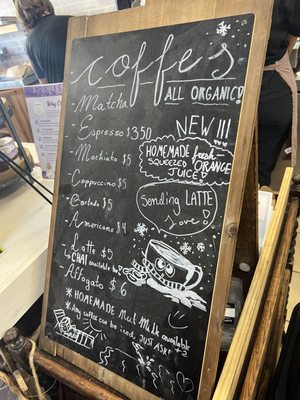 coffes
ALL ORGANIC!
- Matcha
- Espresso $3.50
- Machiato $5
- Cappuccino $5
- Coʁtado $5
- Americano $4
- Latte $5
↳ CHAI available too!
- Affogato $6
NEW!!!
HOMEMADE fresh
SQUEEZED ORANGE
JUICE!
Sending LATTE
Love!
* HOMEMADE Nut Milk available +2
* Any coffee can be iced, JUST ASK!